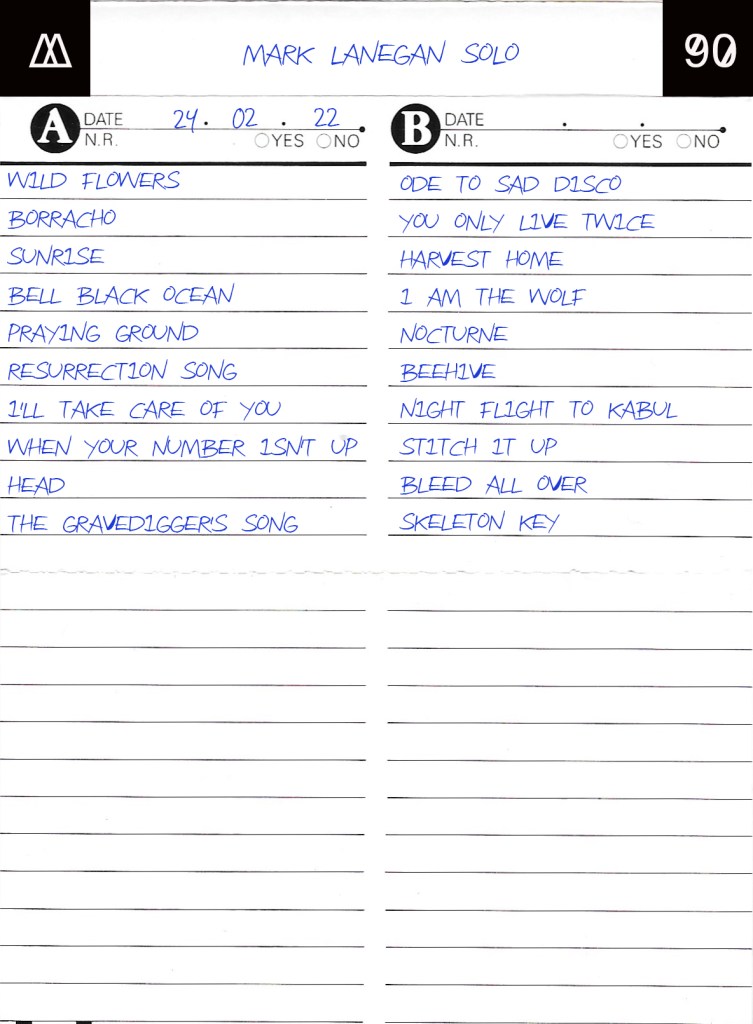 MARK LANEGAN SOLO
90
A DATE 24 . 02 . 22
N.R. YES NO
WILD FLOWERS
BORRACHO
SUNRISE
BELL BLACK OCEAN
PRAYING GROUND
RESURRECTION SONG
I'LL TAKE CARE OF YOU
WHEN YOUR NUMBER ISN'T UP
HEAD
THE GRAVEDIGGER'S SONG
B DATE . .
N.R. YES NO
ODE TO SAD DISCO
YOU ONLY LIVE TWICE
HARVEST HOME
I AM THE WOLF
NOCTURNE
BEEHIVE
NIGHT FLIGHT TO KABUL
STITCH IT UP
BLEED ALL OVER
SKELETON KEY